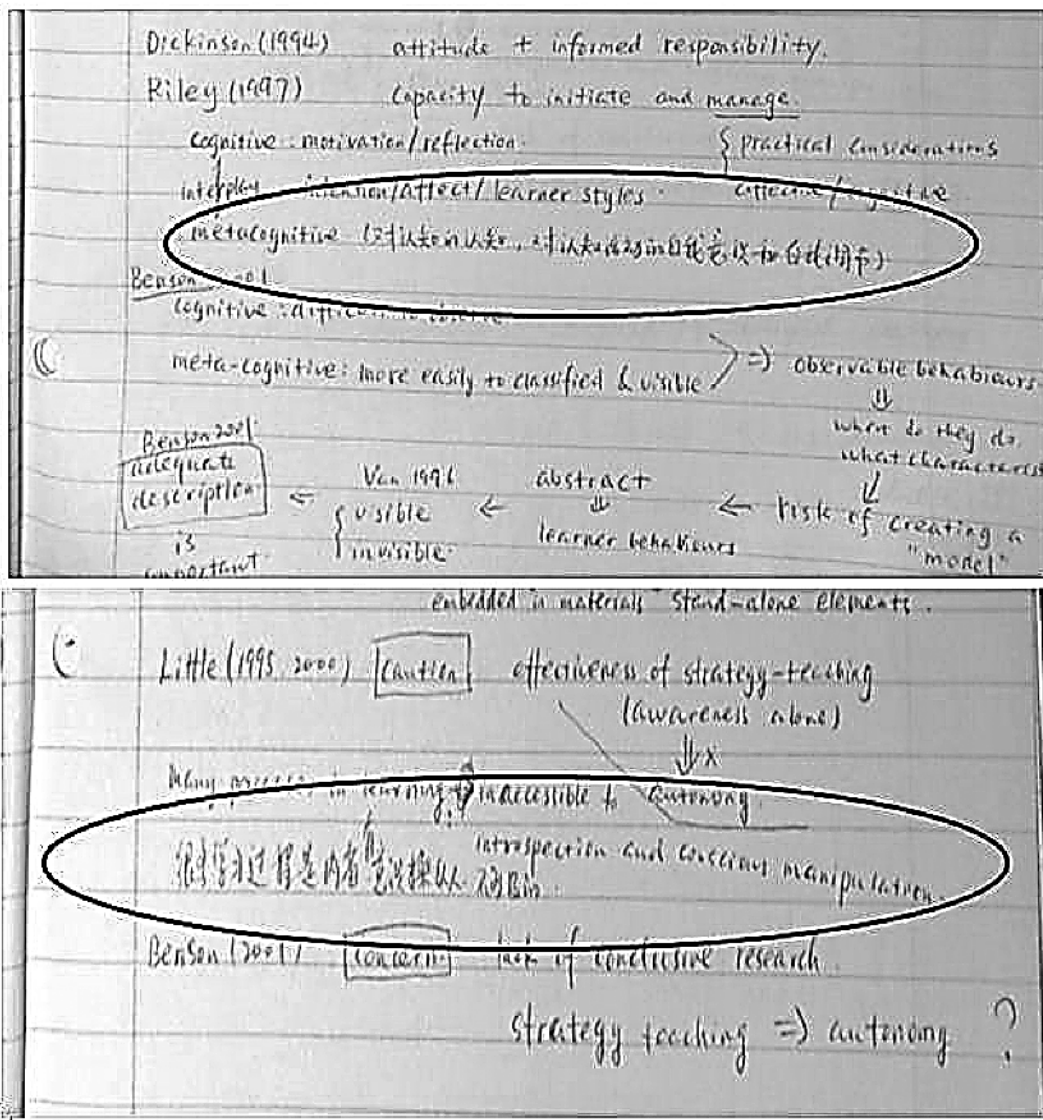 Dickinson (1994) attitude + informed responsibility.
Riley (1997) capacity to initiate and manage.
cognitive : motivation/reflection. { practical considerations
interplay intension/affect/learner styles.
metacognitive (对认知的认知,对认知活动的自我意识和自我调节)
Benson
cognitive : difficult to observe
meta-cognitive: more easily to classified & visible => observable behabiours
⇓
what do they do.
Benson 2001 what characters
adequate description ← Van 1996 { visible invisible. ← abstract ⇓ learner behabiours ← risk of creating a "model"
is
important.
embedded in materials stand-alone elements.
Little (1995 2000) caution effectiveness of strategy-teaching
(awareness alone)
⇓ x
Many processes in learning inaccessible to autonomy.
introspection and conscious manipulation.
Benson (2001) concern lack of conclusive research.
strategy teaching => autonomy ?